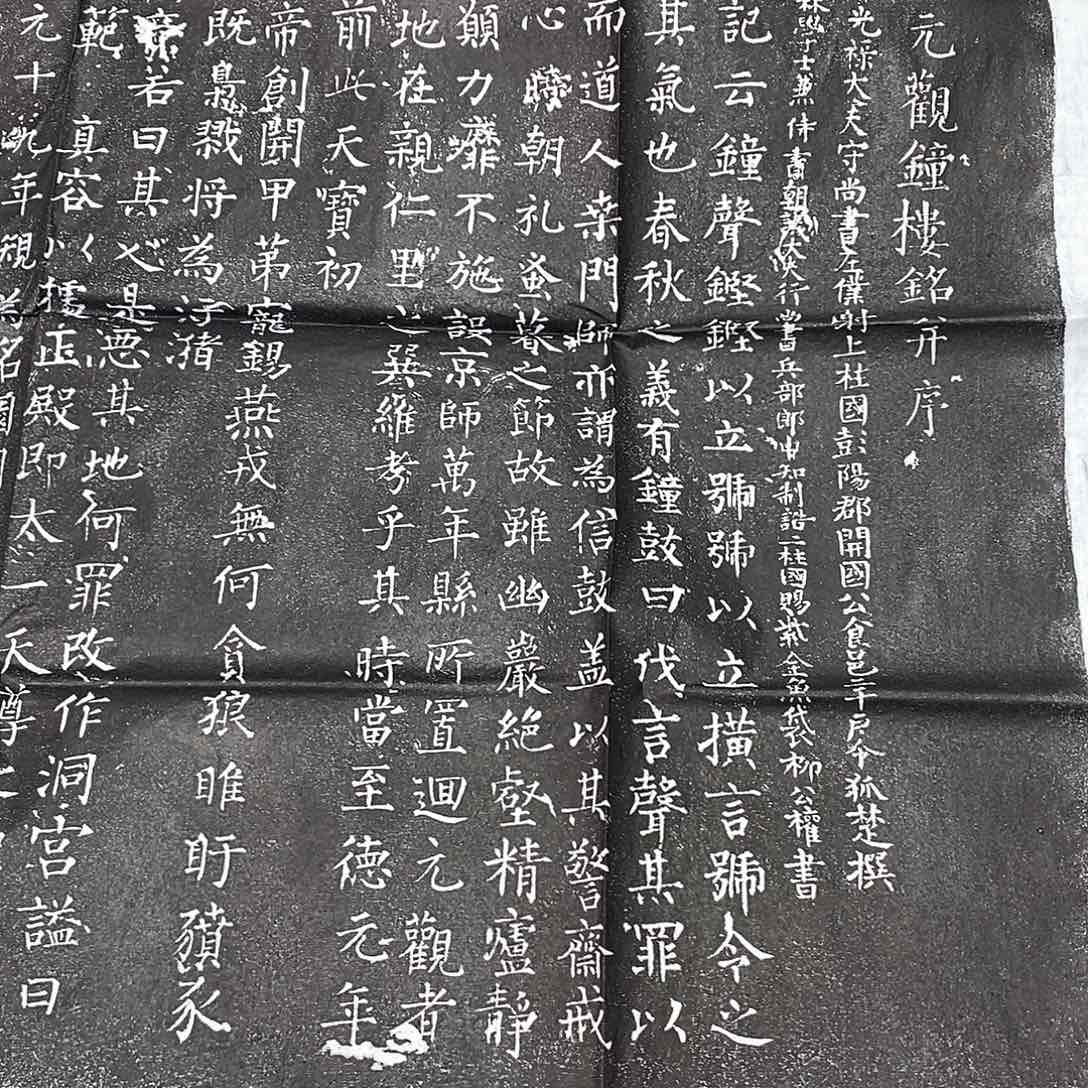 元觀鐘樓銘并序
光祿大夫守尚書左僕射上柱國彭陽郡開國公食邑二千戶令狐楚撰
林學士兼侍書朝議大夫行尚書兵部郎中知制誥上柱國賜紫金魚袋柳公權書
記云鐘聲鏗鏗以立號號以立橫言號令之
其氣也春秋之義有鐘鼓曰伐言聲其罪以
而道人桒門師亦謂為信鼓盖以其警齋戒
心曉朝礼蚤暮之節故雖幽嚴絕壑精廬靜
顛力靡不施誤京師萬年縣所置迴元觀者
地在親仁里之巽維考乎其時當至德元年
前此天寶初
帝創開甲第寵錫燕戎無何貪狼睢盱豶豕
既梟戮將為洿瀦
若曰其人是惡其地何罪改作洞宮謚曰
範真容以據正殿即太一天尊之
元十九年規為名園